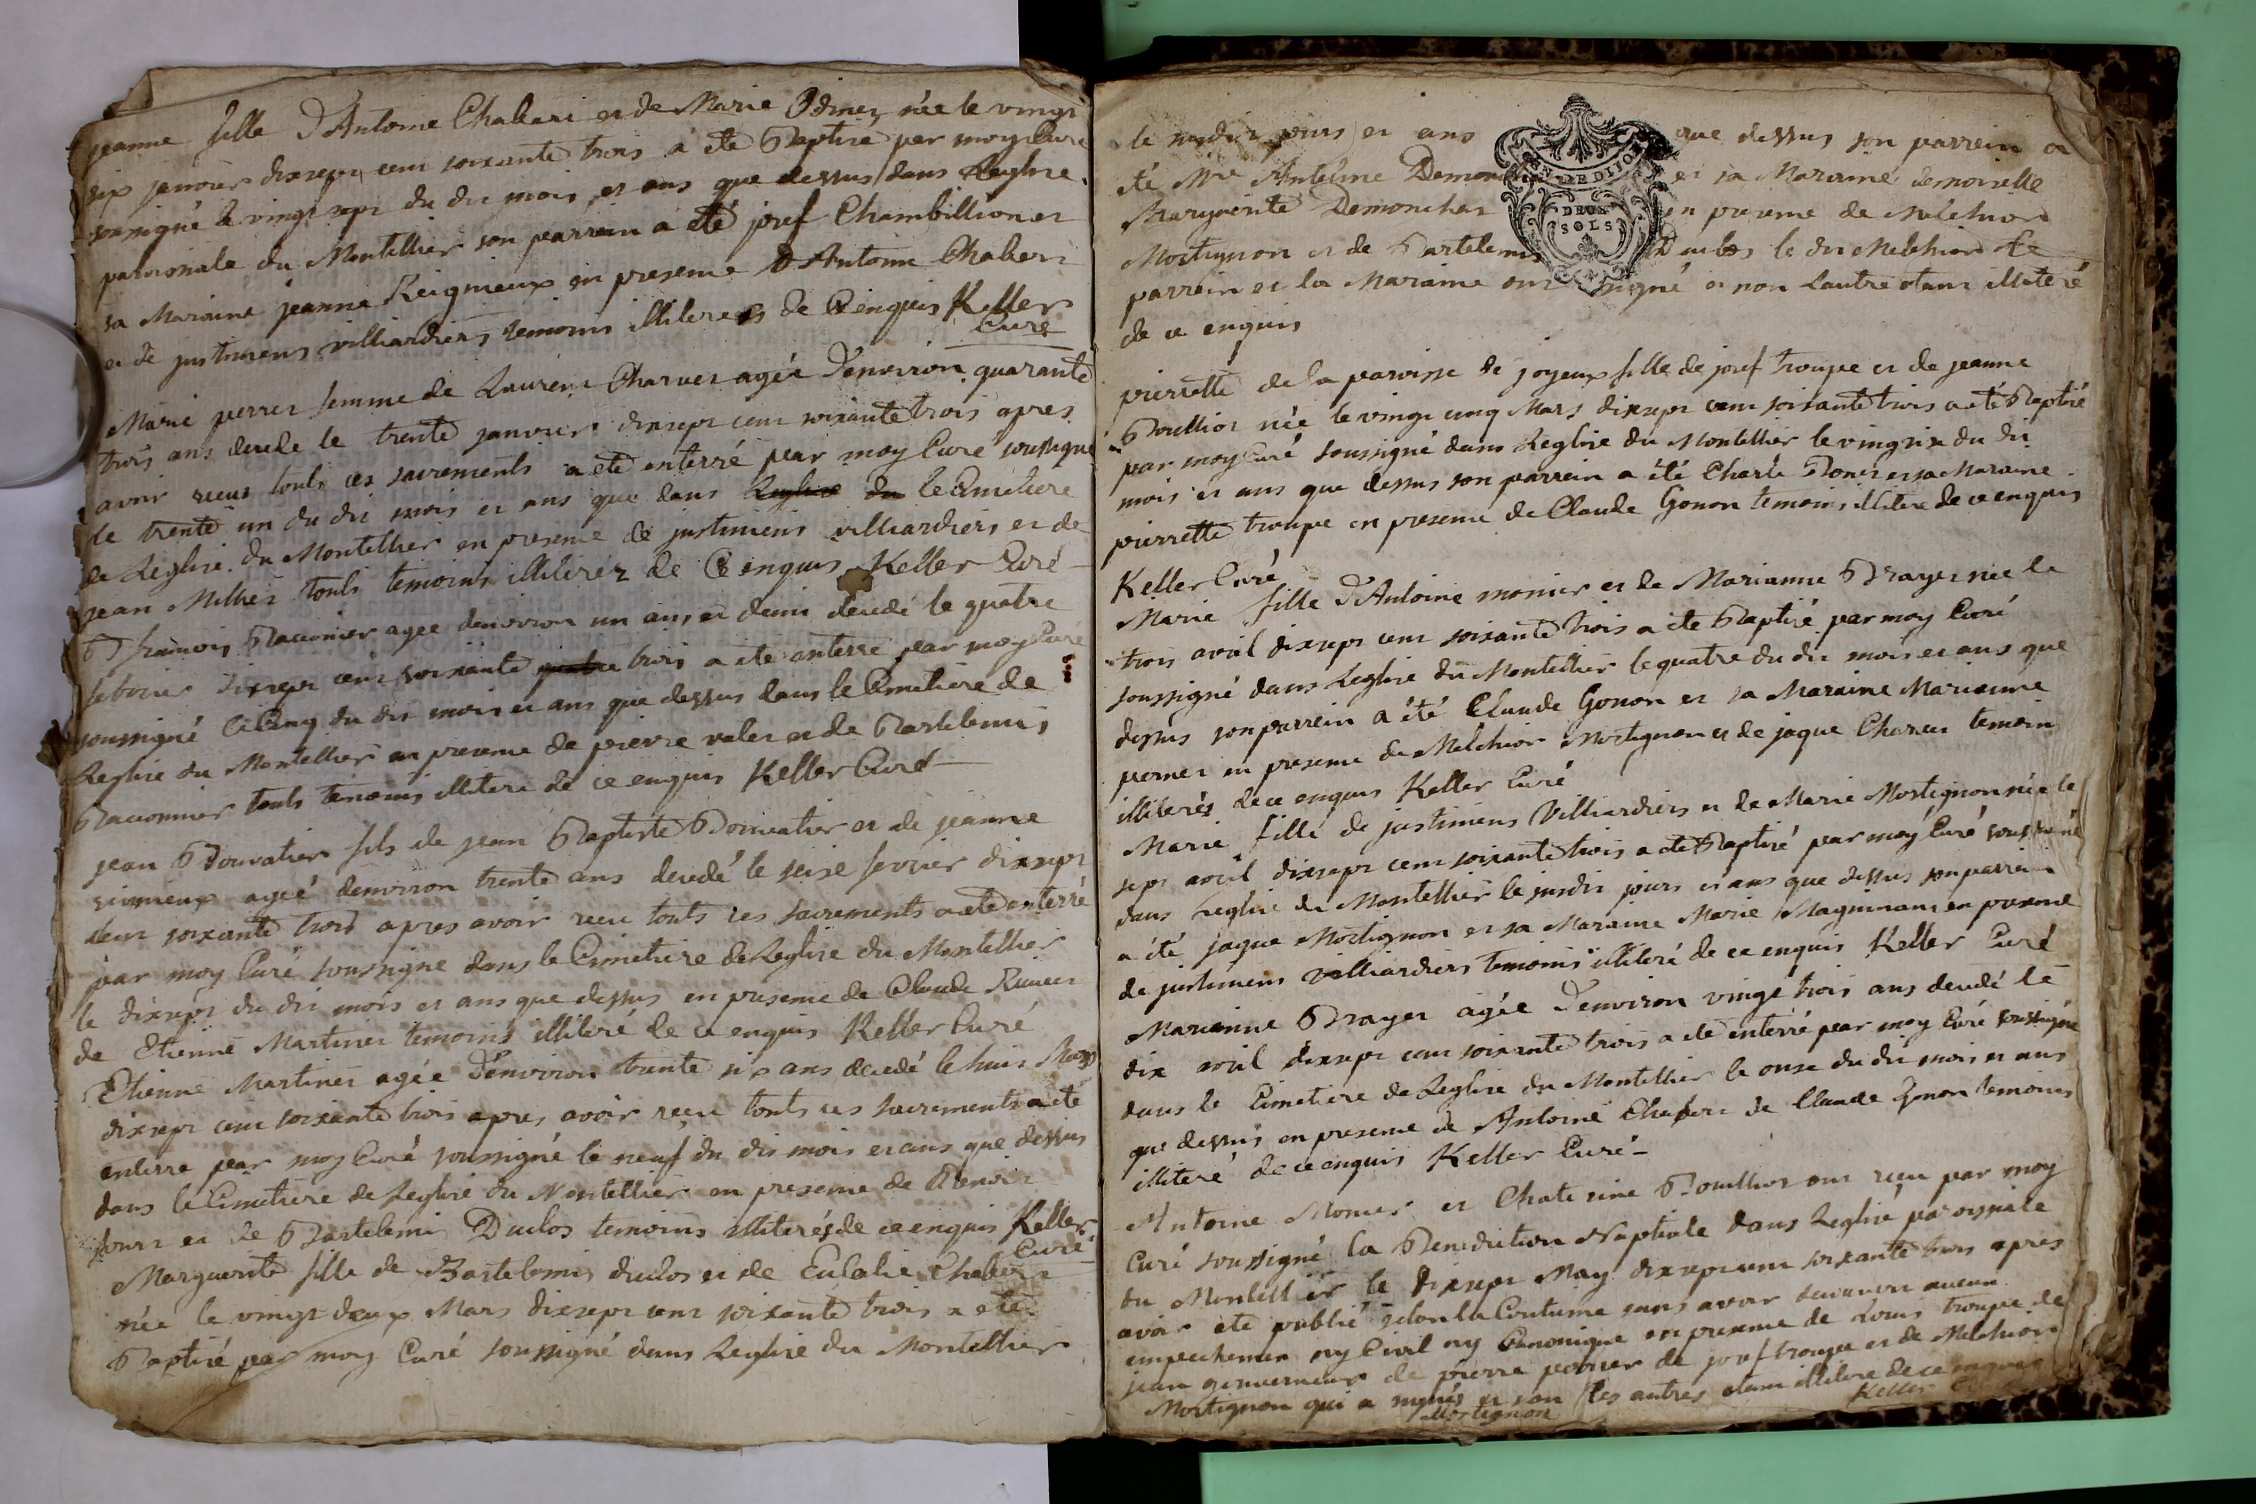 jeanne fille d'Antoine Chaberi et de Marie née le vingt
six janvier dixsept cent soixante trois a ete Baptisé par moy Curé
soussigné le vingt sept du dit mois et ans que dessus dans Leglise
paroissiale du Montellier son parrein a été josef Chambillion et
sa Maraine jeanne Reignieux en presence d'Antoine Chaberi
et de justiniens villiardiers temoins illiteres de ce enquis Keller
Curé
Marie perret femme de Laurent Charvet agée d'environ quarante
trois ans decede le trente janvier dixsept cent soixante trois apres
avoir recus touts ces sacrements a ete enterré par moy Curé soussigné
le trente un du dit mois et ans que dans le Cimetiere
de Leglise du Montellier en presence de justiniens villiardiers et de
jean Milliet touts temoins illiterez de Ce enquis Keller Curé
francois Raconnier agee denviron un ans et demi decedé le quatre
fevrier dixsept cent soixante trois a ete enterré par moy Curé
soussigné le Cinq du dit mois et ans que dessus dans le Cimetiere de
Leglise du Montellier en presence de pierre valet et de Bartelemis
Raconnier touts temoins illitere de ce enquis Keller Curé
jean Bouvatier fils de jean Baptiste Bouvatier et de jeanne
agéé denviron trente ans decedé le seise fevrier dixsept
cent soixante trois apres avoir recu touts ces sacrements a ete enterré
par moy Curé soussigne dans le Cimetiere de Leglise du Montellier
le dixsept du dit mois et ans que dessus en presence de Claude
de Etienne Martinet temoins illiteré de ce enquis Keller Curé
Etienne Martinet agée d'environ trente six ans decedé le huit Mars
dixsept cent soixante trois apres avoir recu touts ces sacrements a ete
enterre par moy Curé soussigné le neuf du dit mois et ans que dessus
dans le Cimetiere de Leglise du Montellier en presence de Benoit
et de Bartelemi Duclos temoins illiterés de ce enquis Keller
Curé
Marguerite fille de Bartelemis duclos et de Eulalie Chaberi
née le vingt deux Mars dixsept cent soixante trois a ete
Baptisé par moy Curé soussigné dans Leglise du Montellier
le susdit jours et ans que dessus son parrein a
été Mre Antelme et sa Marainé demoiselle
Marguerite Demonchas en presence de Melchior
Mortignon et de Bartelemis Duclos le dit Melchior le
parrein et la Maraine ont signé et non Lautre etant illiteré
de ce enquis
GEN DEDIION
DEUX
SOLS
pierrette de la paroisse de joyeux fille de josef troupe et de jeanne
Bouillot née le vingt cinq Mars dixsept cent soixante trois a eté Baptisé
par moy Curé soussigné dans Leglise du Montellier le vingt six du dit
mois et ans que dessus son parrein a été Charle et sa Maraine
pierrette troupe en presence de Claude Gonon temoins illitere de ce enquis
Keller Curé
Marie fille d'Antoine monier et de Marianne Brayet née le
trois avril dixsept cent soixante trois a ete Baptisé par moy Curé
soussigné dans Leglise du Montellier le quatre du dit mois et ans que
dessus son parrein a été Claude Gonon et sa Maraine Marianne
pernet en presence de Melchior Mortignon et de jaque Charvet temoin
illiterés de ce enquis Keller Curé
Marie fille de justiniens Villiardiers et de Marie Mortignon née le
sept avril dixsept cent soixante trois a ete Baptisé par moy Curé soussigné
dans Leglise du Montellier le susdit jours et ans que dessus son parrein
a été jaque Mortignon et sa Maraine Marie en presence
de justiniens Villiardiers temoins illiteré de ce enquis Keller Curé
Marianne Brayet agée d'environ vingt trois ans decedé le
dix avril dixsept cent soixante trois a ete enterré par moy Curé soussigné
dans le Cimetiere de Leglise du Montellier le onse du dit mois et ans
que dessus en presence de Antoine Chaberi de Claude Gonon temoins
illiteré de ce enquis Keller Curé
Antoine Monier et Chaterine Bouillot ont reçu par moy
Curé soussigné la Benediction Nuptiale dans Leglise paroissiale
du Montellier le dixsept May dixsept cent soixante trois apres
avoir ete publié selon la Coutume sans avoir aucun
empechement ny Civil ny Canonique en presence de Louis troupe de
jean de pierre perrier de josef troupe et de Melchior
Mortignon qui a signés et non les autres etant illitere de ce enquis
Mortignon Keller